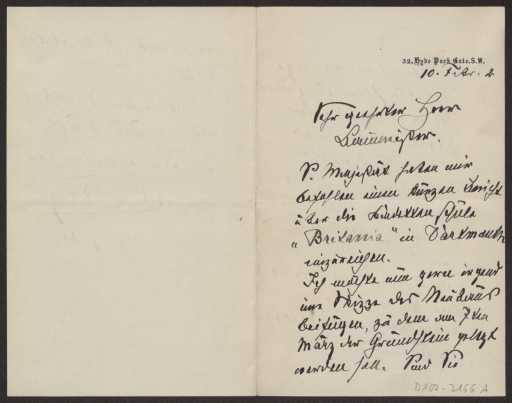 32, Hyde Park Gate. S.W.
10. Febr. 2
Sehr geehrter Herr
Baumeister.
S. Majestät haben mir
befohlen einen kurzen Bericht
über die Kadettenschule
„Britania" in Dartmouth
einzureichen.
Ich möchte nun gerne irgend
eine Skizze des Neubaus
beifügen, zu dem am 7ten
März der Grundstein gelegt
werden soll. Sind Sie